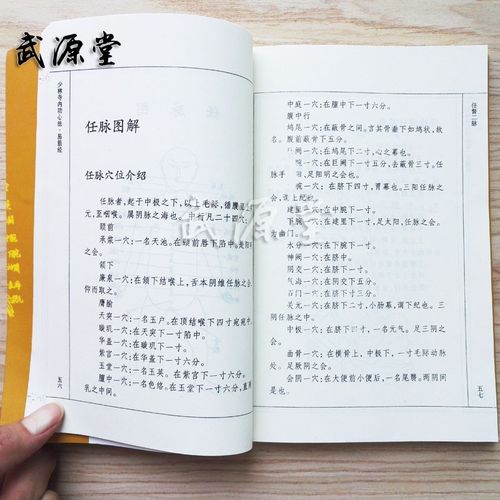 武源堂
少林寺内功心法·易筋经
任脉图解
任脉穴位介绍
任脉者,起于中极之下,以上毛际,循腹里上
元,至咽喉。属阴脉之海也。中行凡二十四穴:
颐前
承浆一穴:一名天池。在颐前唇下陷中,是阳脉
之会。
颔下
廉泉一穴:在颔下结喉上,舌本阴维任脉之会,
仰而取之。
膺腧
天突一穴:一名玉户。在顶结喉下四寸宛宛中。
璇玑一穴:在天突下一寸陷中。
华盖一穴:在璇玑下一寸。
紫宫一穴:在华盖下一寸六分。
玉堂一穴:一名玉英。在紫宫下一寸六分。
膻中一穴:一名色烙。在玉堂下一寸六分,直两
乳之中间。
五六
任督二脉
中庭一穴:在膻中下一寸六分。
腹中行
鸠尾一穴:在蔽骨之间。言其骨垂下如鸠状,故
名。臆前蔽骨下五分。
巨阙一穴:在鸠尾下二寸,心之幕也。
脘一穴:在巨阙下一寸五分,去蔽骨三寸。任脉
手 阳,足阳明之会。
脘一穴:在脐下四寸,胃幕也。三阳任脉之
会,谓上纪也。
建里一穴:在中脘下一寸。
下脘一穴:在建里下一寸,足太阳,任脉之会。
为幽门。
水分一穴:在下脘下一寸。
神阙一穴:在脐中。
阴交一穴:在脐下一寸。
气海一穴:在阴交下五分。
石门一穴:在脐下三寸分。
关元一穴:在脐下二寸,小肠幕,谓下纪也。三
阴任脉之中。
中极一穴:在脐下 寸,一名元气。足三阴之
会。
曲骨一穴:在横骨上,中极下,一寸毛际动脉
处。足厥阴之会。
会阴一穴:在大便前小便后,一名尾翳。两阴间
是也。
五七
武源堂